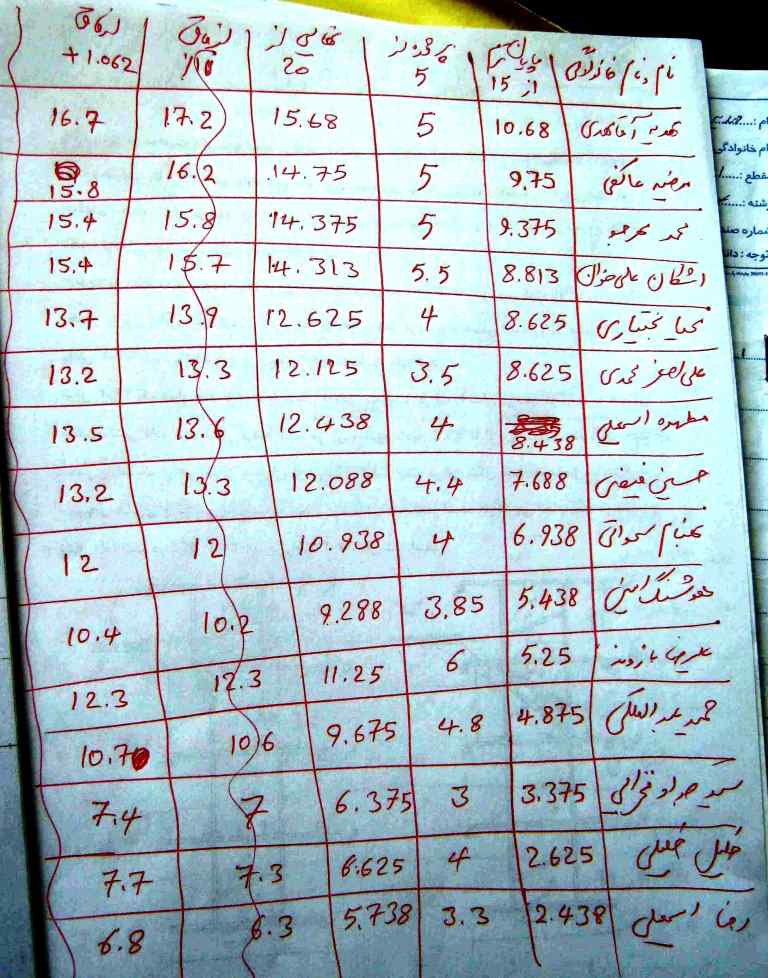 نام و نام خانوادگی پایان ترم از 15 پروژه از 5 نهایی از 20 ارفاق 10% ارفاق +1.062
10.68 5 15.68 17.2 16.7
مرضیه عاکفی 9.75 5 14.75 16.2 15.8
محمد 9.375 5 14.375 15.8 15.4
اشکان علی خوان 8.813 5.5 14.313 15.7 15.4
بختیاری 8.625 4 12.625 13.9 13.7
علی اصغر محمدی 8.625 3.5 12.125 13.3 13.2
مطهره اسمعلی 8.438 4 12.438 13.6 13.5
حسین فیضی 7.688 4.4 12.088 13.3 13.2
بهنام 6.938 4 10.938 12 12
هوشنگ امینی 5.438 3.85 9.288 10.2 10.4
علیرضا 5.25 6 11.25 12.3 12.3
حمید عبدالملکی 4.875 4.8 9.675 10.6 10.7
3.375 3 6.375 7 7.4
خلیل خلیلی 2.625 4 6.625 7.3 7.7
رضا اسمعلی 2.438 3.3 5.738 6.3 6.8